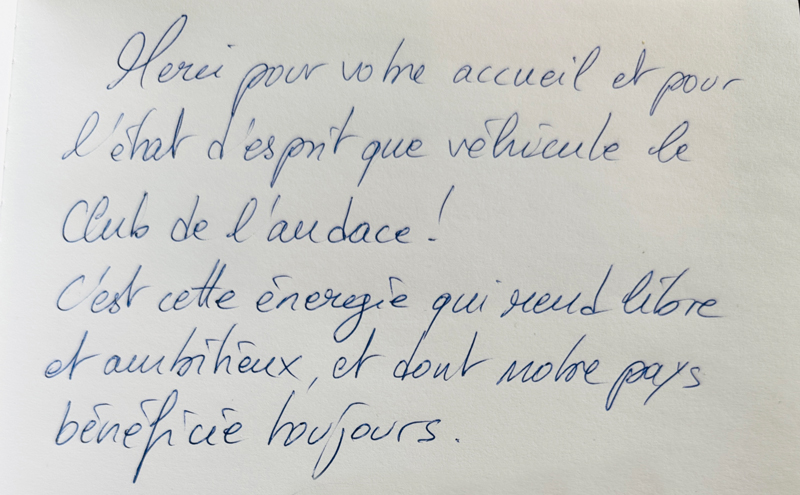 Merci pour votre accueil et pour
l'état d'esprit que véhicule le
Club de l'audace !
C'est cette énergie qui rend libre
et ambitieux, et dont notre pays
bénéficie toujours.